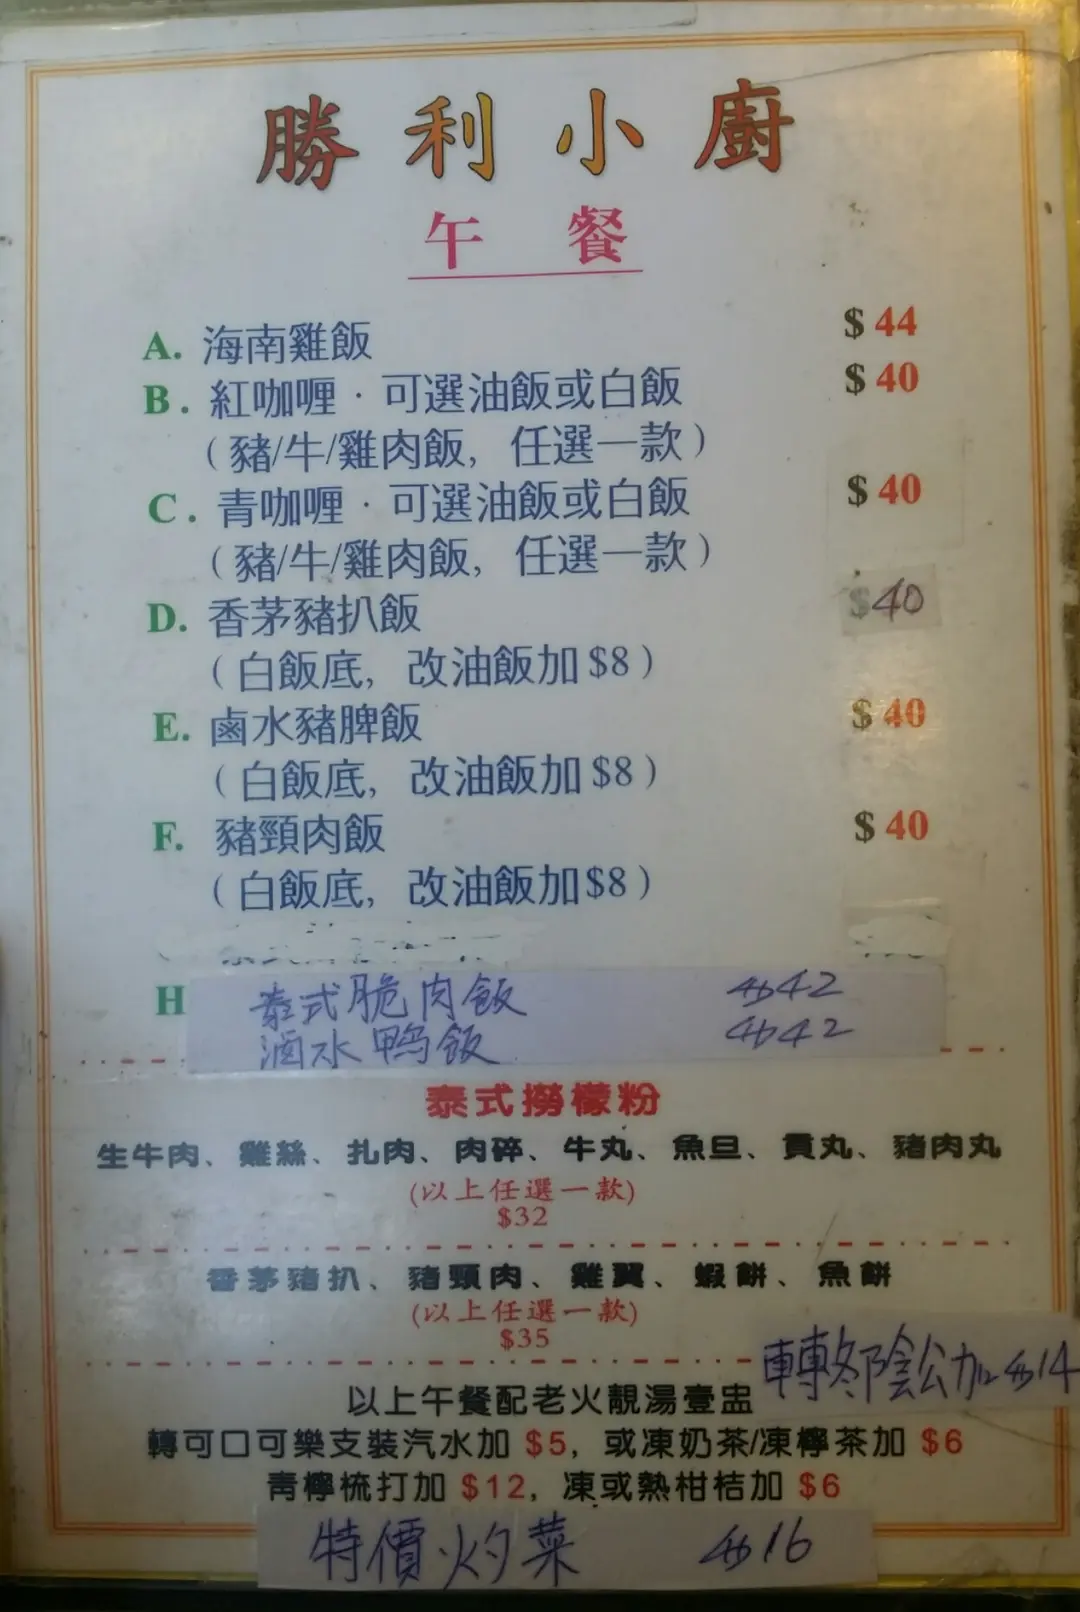 勝利小廚
午餐
A. 海南雞飯 $44
B. 紅咖喱·可選油飯或白飯 $40
(豬/牛/雞肉飯, 任選一款)
C. 青咖喱·可選油飯或白飯 $40
(豬/牛/雞肉飯, 任選一款)
D. 香茅豬扒飯 $40
(白飯底, 改油飯加$8)
E. 鹵水豬脾飯 $40
(白飯底, 改油飯加$8)
F. 豬頸肉飯 $40
(白飯底, 改油飯加$8)
H 泰式脆肉飯 $42
滷水鴨飯 $42
泰式撈檬粉
生牛肉、雞絲、扎肉、肉碎、牛丸、魚旦、貢丸、豬肉丸
(以上任選一款)
$32
香茅豬扒、豬頸肉、雞翼、蝦餅、魚餅
(以上任選一款)
$35
轉冬陰公加$14
以上午餐配老火靚湯壹盅
轉可口可樂支裝汽水加 $5, 或凍奶茶/凍檸茶加 $6
青檸梳打加 $12, 凍或熱柑桔加 $6
特價灼菜 $16